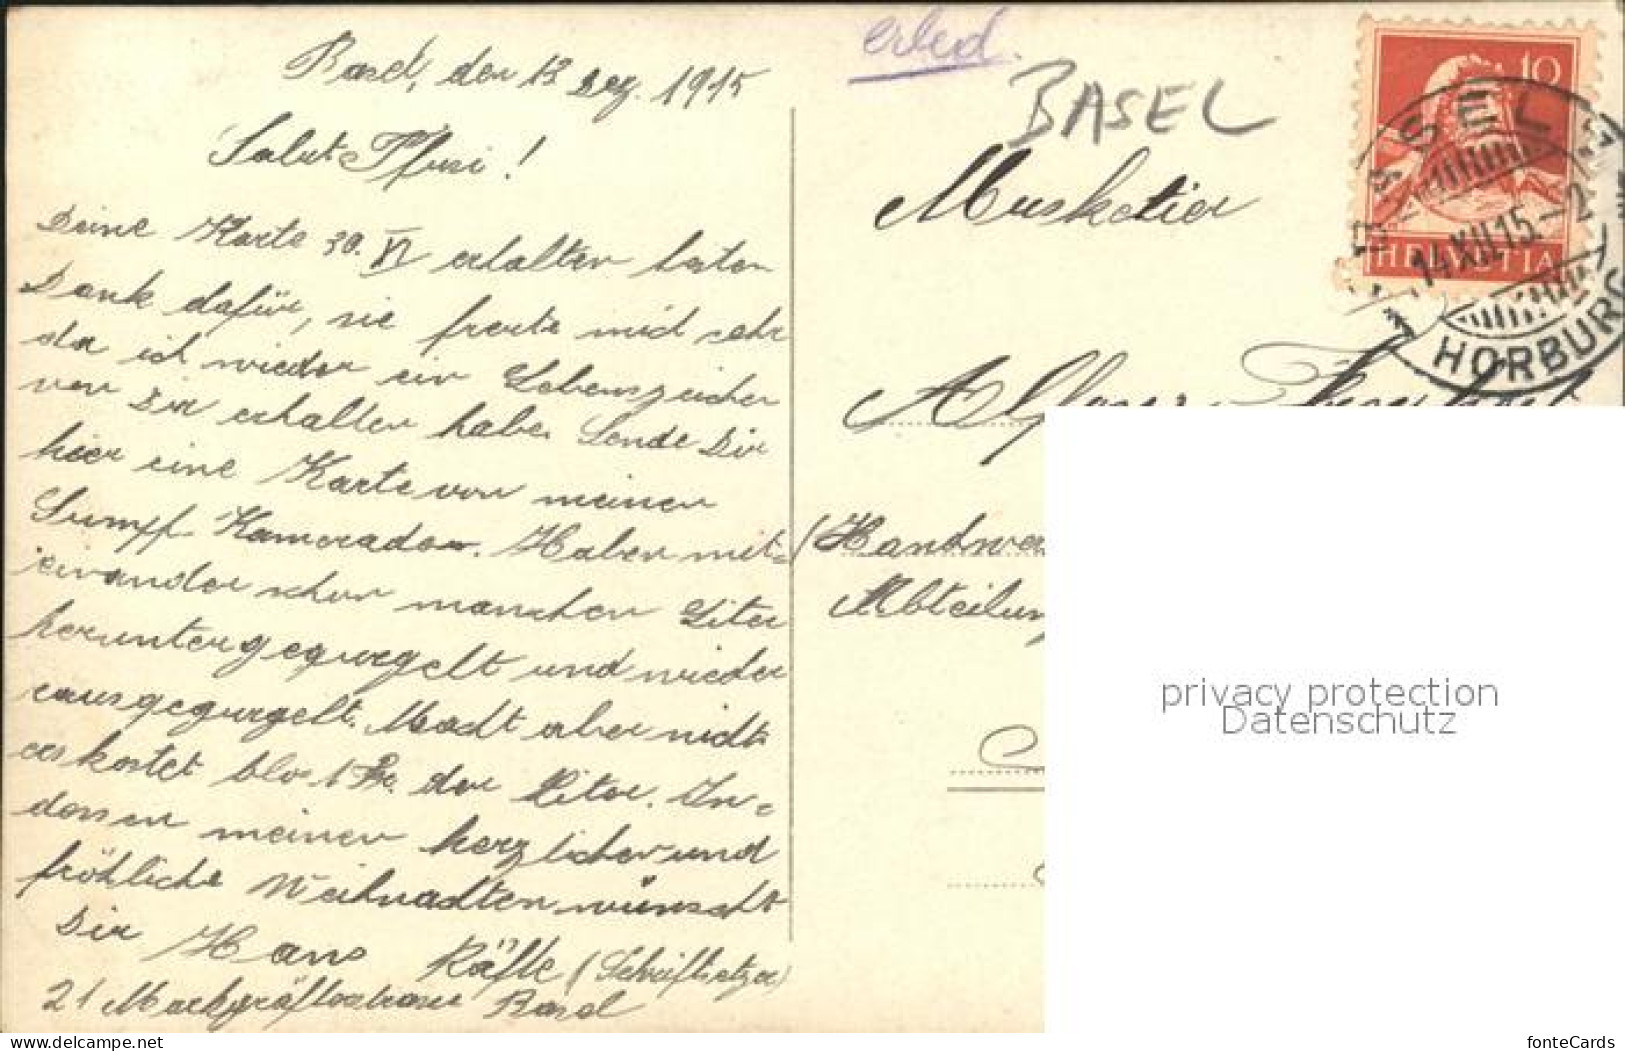 Basel, den 13 Dez. 1915
Salut Pfusi!
Deine Karte 30. XI erhalten besten
Dank dafür, sie freute mich sehr
da ich wieder ein Lebenszeichen
von Dir erhalten habe. Sende Dir
hier eine Karte von meinen
Sumpf Kameraden. Haben mit=
einander schon manchen Liter
heruntergegurgelt und wieder
rausgegurgelt. Macht aber nichts
es kostet blos 1 Fr. der Liter. In=
dessen meinen herzlichen und
fröhliche Weihnachten wünscht
Dir Hans (Schriftsetzer)
21 Markgräflerstrasse Basel
erled.
BASEL
Musketier
(Handwer
Abteilun
10
HELVETIA
BASEL
14 XII 15 - 2
HORBURG
privacy protection
Datenschutz
www.delcampe.net
fonteCards